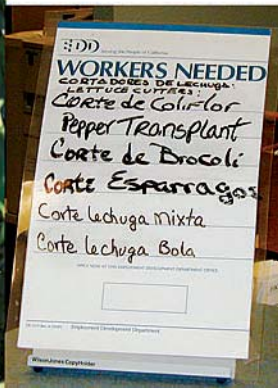 EDD Serving the People of California
WORKERS NEEDED
CORTADORES DE LECHUGA:
LETTUCE CUTTERS:
Corte de Coliflor
Pepper Transplant
Corte de Brocoli
Corte Esparragos
Corte lechuga Mixta
Corte lechuga Bola
APPLY NOW AT THIS EMPLOYMENT DEVELOPMENT DEPARTMENT OFFICE
Employment Development Department
WilsonJones CopyHolder